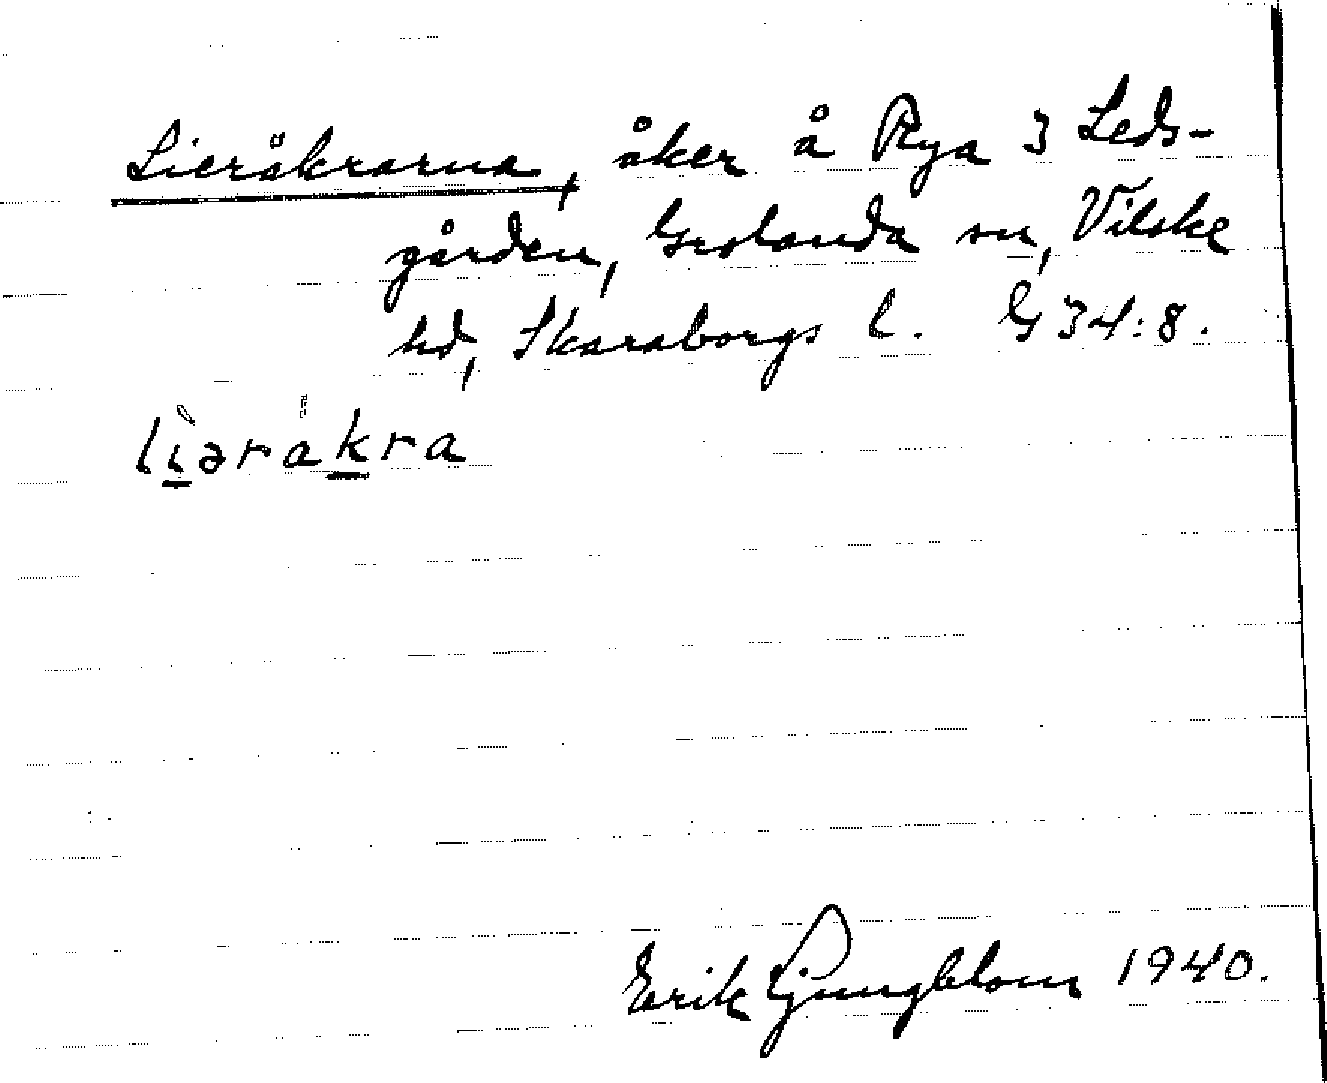 Lieråkrarna, åker å Rya 3 Leds-
gården, Grolanda sn, Vilske
hd, Skaraborgs l. G 34:8.
lìəråkra
Erik Ljungblom 1940.